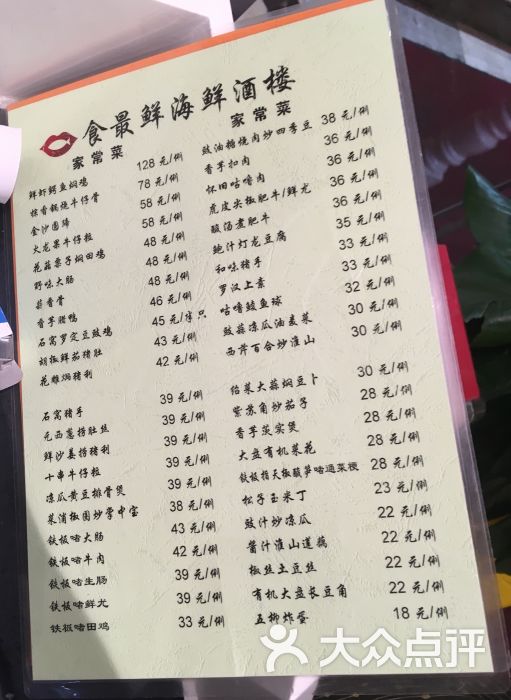 食最鲜海鲜酒楼
家常菜
鲜虾鳄鱼焖鸡 128 元/俐
棕香锅烧牛仔骨 78 元/俐
金沙围蹄 58 元/俐
火龙果牛仔粒 58 元/俐
花菇栗子焖田鸡 48 元/俐
野味大肠 48 元/俐
蒜香骨 48 元/俐
香芋腊鸭 46 元/俐
石窝罗定豆豉鸡 45 元/半只
胡椒鲜茄猪肚 43 元/俐
花雕焖猪利 42 元/俐
石窝猪手 39 元/俐
元西葱捞肚丝 39 元/俐
鲜沙姜捞猪利 39 元/俐
十串牛仔粒 39 元/俐
凉瓜黄豆排骨煲 39 元/俐
菜浦椒圈炒掌中宝 38 元/俐
铁板啫大肠 43 元/俐
铁板啫牛肉 42 元/俐
铁板啫生肠 39 元/俐
铁板啫鲜尤 39 元/俐
铁板啫田鸡 33 元/俐
家常菜
豉油糖烧肉炒四季豆 38 元/俐
香芋扣肉 36 元/俐
怀旧咕噜肉 36 元/俐
虎皮尖椒肥牛/鲜尤 36 元/俐
酸汤煮肥牛 36 元/俐
鲍汁灯龙豆腐 35 元/俐
和味猪手 33 元/俐
罗汉上素 33 元/俐
咕噜鲮鱼球 32 元/俐
豉蒜凉瓜油麦菜 30 元/俐
西芹百合炒淮山 30 元/俐
给菜大蒜焖豆卜 30 元/俐
紫苏角炒茄子 28 元/俐
香芋茨实煲 28 元/俐
大盘有机菜花 28 元/俐
铁板指天椒酸笋啫通菜梗 28 元/俐
松子玉米丁 23 元/俐
豉汁炒凉瓜 22 元/俐
酱汁淮山莲藕 22 元/俐
椒丝土豆丝 22 元/俐
有机大盘长豆角 22 元/俐
五柳炸蛋 18 元/俐
大众点评